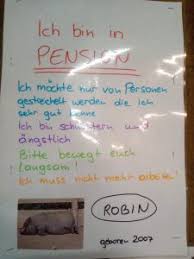 Ich bin in
PENSION
Ich möchte nur von Personen
gestreichelt werden die ich
sehr gut kenne
Ich bin schüchtern und
ängstlich
Bitte bewegt euch
langsam!
Ich muss nicht mehr arbeiten!
ROBIN
geboren 2007